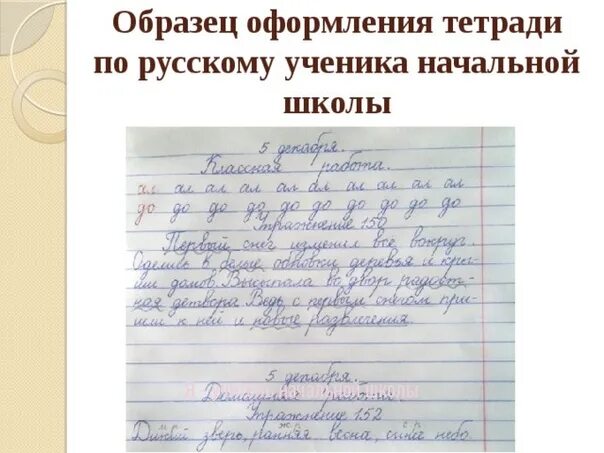 Образец оформления тетради
по русскому ученика начальной
школы
5 декабря.
Классная работа.
ал ал ал ал ал ал ал ал ал ал
до до до до до до до до до до
Упражнение 150
Первый снег изменил всё вокруг.
Оделись в белые обновки деревья и кры-
ши домов. Высыпала во двор радост-
ная детвора. Ведь с первым снегом при-
шли к ней и новые развлечения.
5 декабря.
Домашняя работа.
Упражнение 152
зверь, ранняя весна, синее небо.